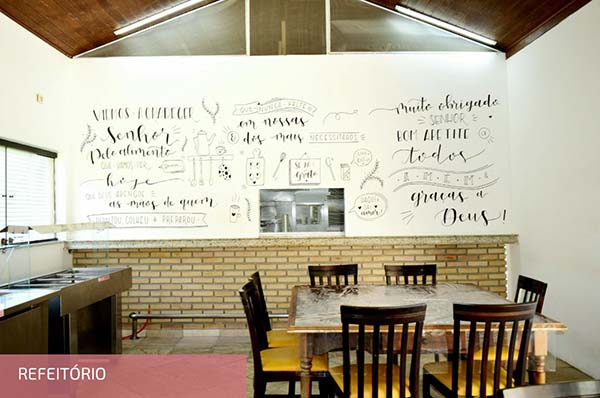 VIEMOS AGRADECER
Senhor
Pelo alimento
QUE VAMOS TER
hoje
QUE DEUS ABENÇOE
as mãos de quem
PLANTOU COLHEU + PREPAROU
QUE NUNCA FALTE
em nossas
& dos mais
NECESSITADOS
SEJA
Grato
amor
muito obrigado
SENHOR
BOM APETITE
a
todos
AMÉM
graças a
Deus!
REFEITÓRIO